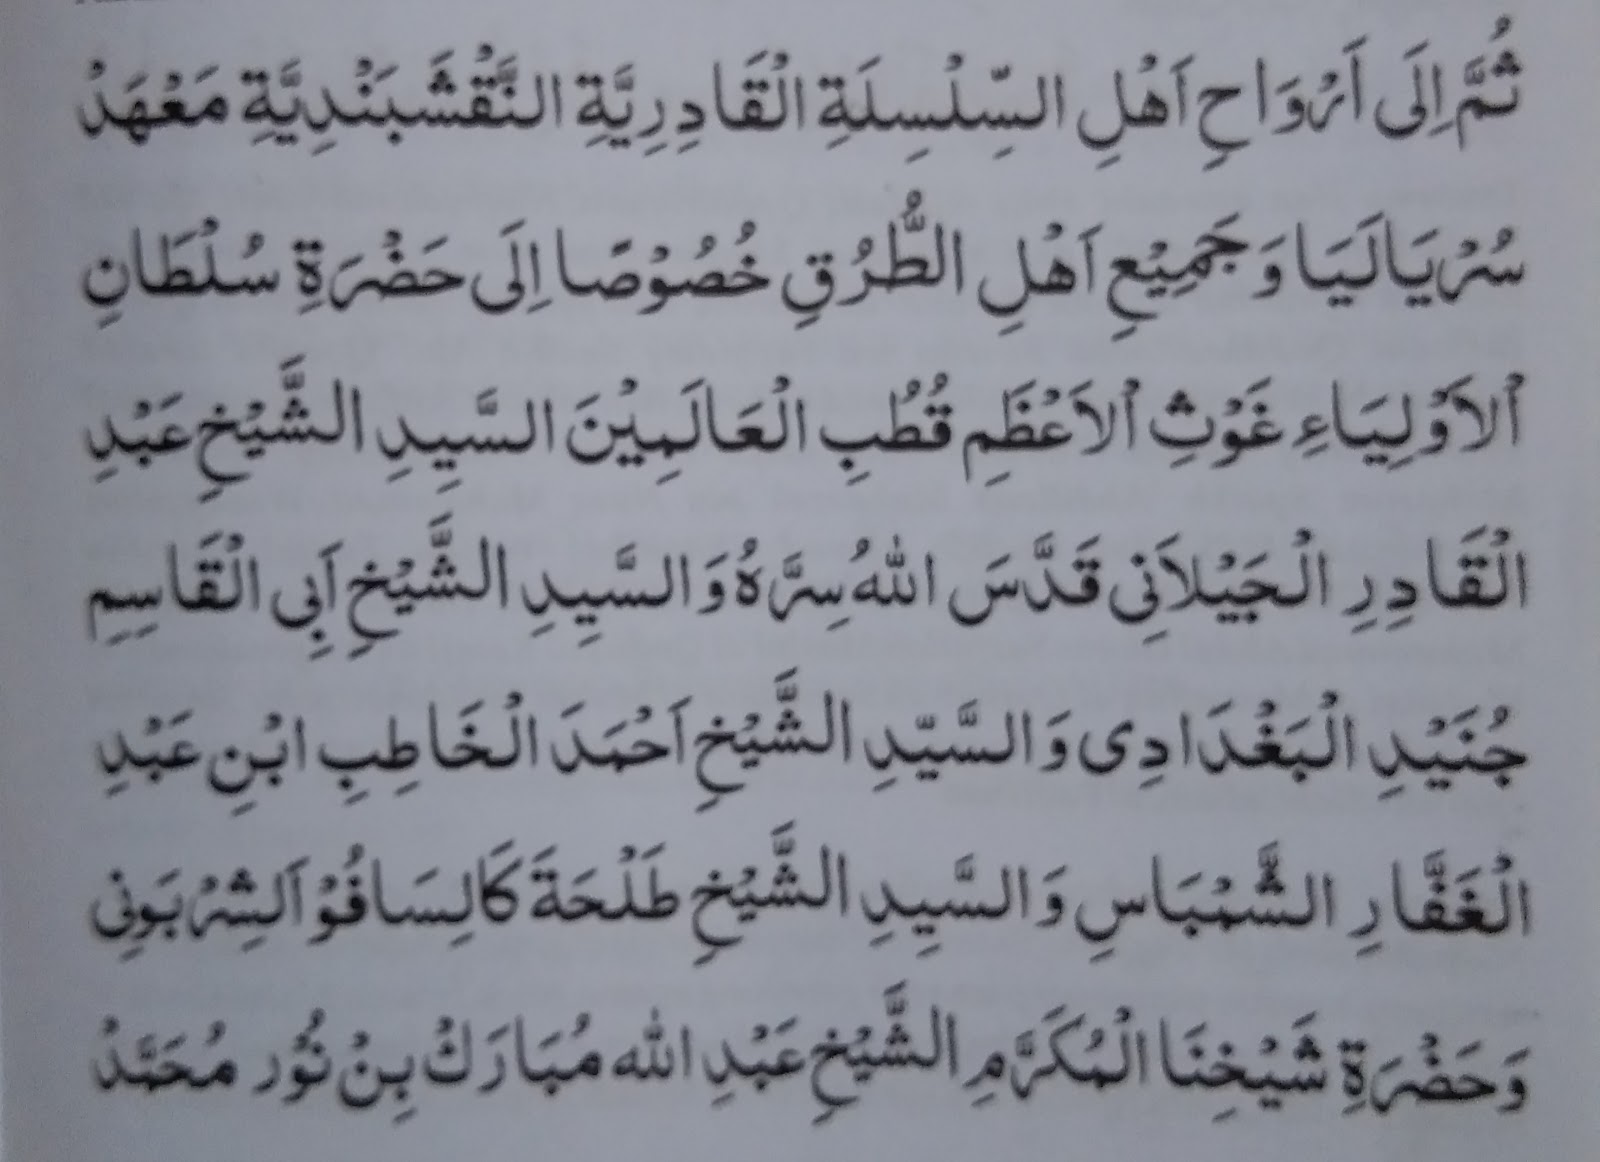 ثُمَّ إِلَى أَرْوَاحِ اَهْلِ السِّلْسِلَةِ الْقَادِرِيَّةِ النَّقْشَبَنْدِيَّةِ مَعْهَدْ
سُرْيَالَيَا وَجَمِيْعِ اَهْلِ الطُّرُقِ خُصُوْصًا اِلَى حَضْرَةِ سُلْطَانِ
اْلاَوْلِيَاءِ غَوْثِ اْلاَعْظَمِ قُطُبِ الْعَالَمِيْنَ السَّيِدِ الشَّيْخِ عَبْدِ
الْقَادِرِ الْجَيْلاَنِى قَدَّسَ اللهُ سِرَّهُ وَالسَّيِدِ الشَّيْخِ اَبِى الْقَاسِمِ
جُنَيْدِ الْبَغْدَادِى وَالسَّيِّدِ الشَّيْخِ اَحْمَدَ الْخَاطِبِ ابْنِ عَبْدِ
الْغَفَّارِ الشَّمْبَاسِ وَالسَّيِدِ الشَّيْخِ طَلْحَةَ كَالِسَافُوْ اَلشِرْبَوْنِى
وَحَضْرَةِ شَيْخِنَا الْمُكَرَّمِ الشَّيْخِ عَبْدِ الله مُبَارَكْ بِنْ نُوْر مُحَمَّدْ